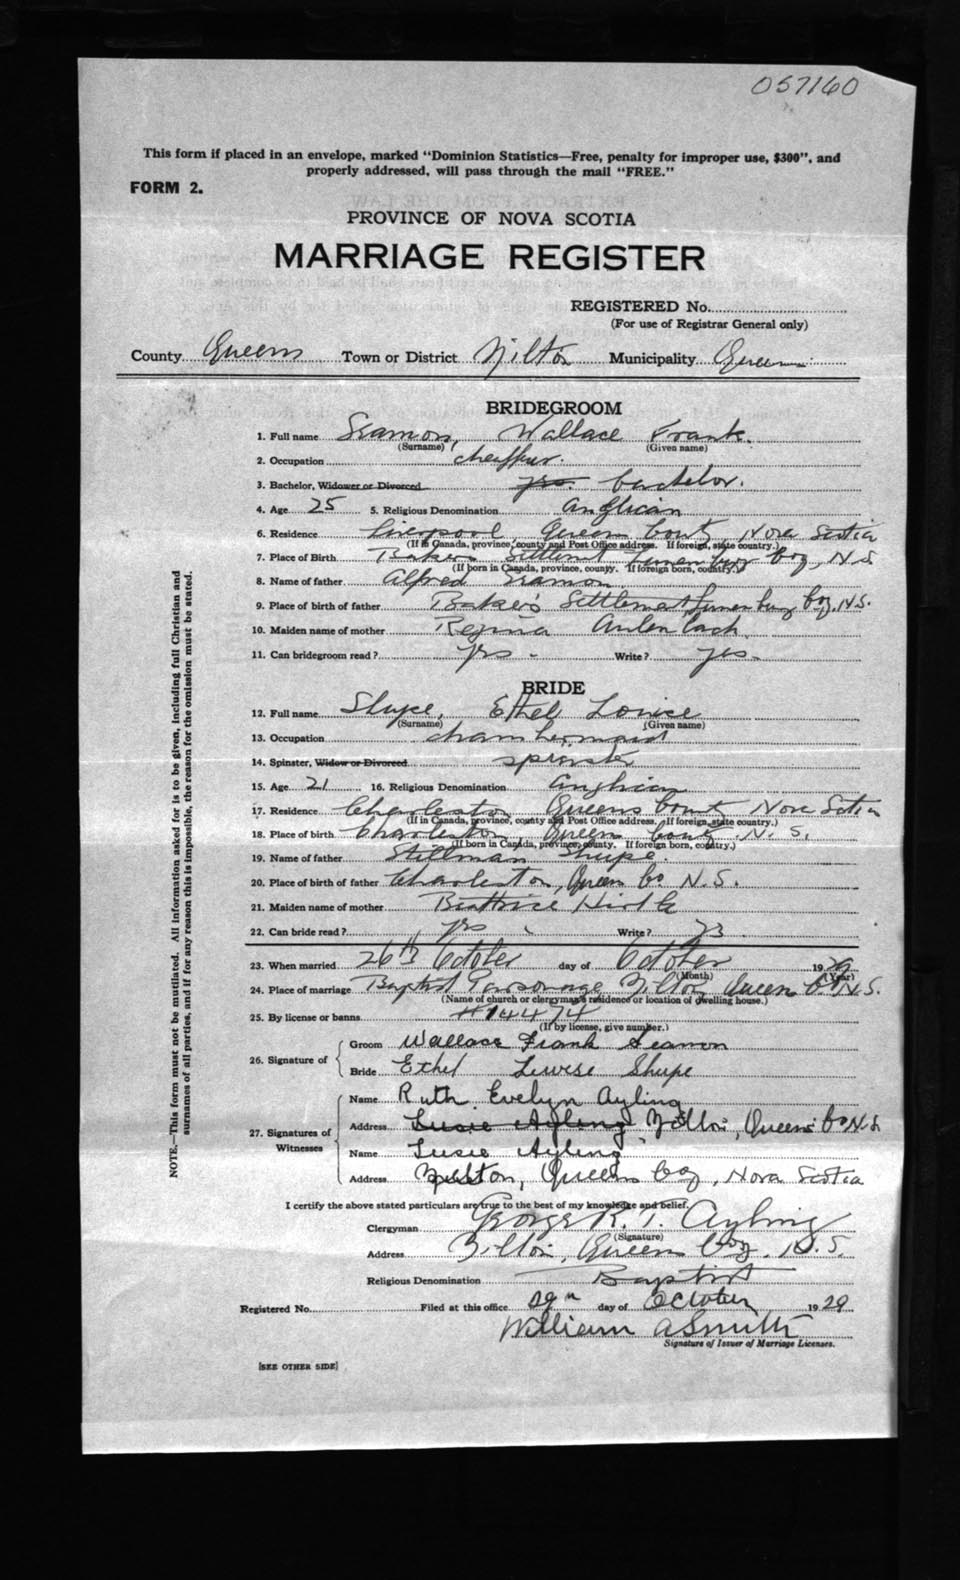 057160
This form if placed in an envelope, marked "Dominion Statistics—Free, penalty for improper use, $300", and
properly addressed, will pass through the mail "FREE."
FORM 2.
PROVINCE OF NOVA SCOTIA
MARRIAGE REGISTER
REGISTERED No.
(For use of Registrar General only)
County Queens Town or District Milton Municipality Queens
BRIDEGROOM
1. Full name Seamon, Wallace Frank.
(Surname) (Given name)
2. Occupation cheaffur.
3. Bachelor, Widower or Divorced yes. bachelor.
4. Age 25 5. Religious Denomination Anglican
6. Residence Liverpool Queens County, Nova Scotia
(If in Canada, province, county and Post Office address. If foreign, state country.)
7. Place of Birth Bakers Settlement Lunenburg Coy, N.S
(If born in Canada, province, county. If foreign born, country.)
8. Name of father Alfred Seamon
9. Place of birth of father Baker's Settlement Lunenburg Coy. N.S.
10. Maiden name of mother Regina Aulenbach.
11. Can bridegroom read? yes - Write? yes-
BRIDE
12. Full name Shupe, Ethel Louise
(Surname) (Given name)
13. Occupation chambermaid
14. Spinster, Widow or Divorced spinster
15. Age 21 16. Religious Denomination Anglican
17. Residence Charleston Queens County Nova Scotia
(If in Canada, province, county and Post Office address. If foreign, state country.)
18. Place of birth Charleston, Queens County N.S.
(If born in Canada, province, county. If foreign born, country.)
19. Name of father Stillman Shupe.
20. Place of birth of father Charleston, Queens Co. N.S.
21. Maiden name of mother Beattrice Hirtle
22. Can bride read? yes Write?
23. When married 26th October day of October 1929
(Month) (Year)
24. Place of marriage Baptist Parsonage Milton Queens Co N.S.
(Name of church or clergyman's residence or location of dwelling house.)
25. By license or banns #14474
(If by license, give number.)
26. Signature of
Groom Wallace Frank Seamon
Bride Ethel Lewise Shupe
27. Signatures of Witnesses
Name Ruth Evelyn Ayling
Address Susie Ayling Milton, Queens Co N.S
Name Susie Ayling
Address Milton, Queens Coy, Nova Scotia
I certify the above stated particulars are true to the best of my knowledge and belief.
Clergyman George R. T. Ayling
(Signature)
Address Milton, Queens Coy. N.S.
Religious Denomination Baptist
Registered No. Filed at this office 29th day of October 1929
William A Smith
Signature of Issuer of Marriage Licenses.
[SEE OTHER SIDE]
NOTE.—This form must not be mutilated. All information asked for is to be given, including full Christian and
surnames of all parties, and if for any reason this is impossible, the reason for the omission must be stated.